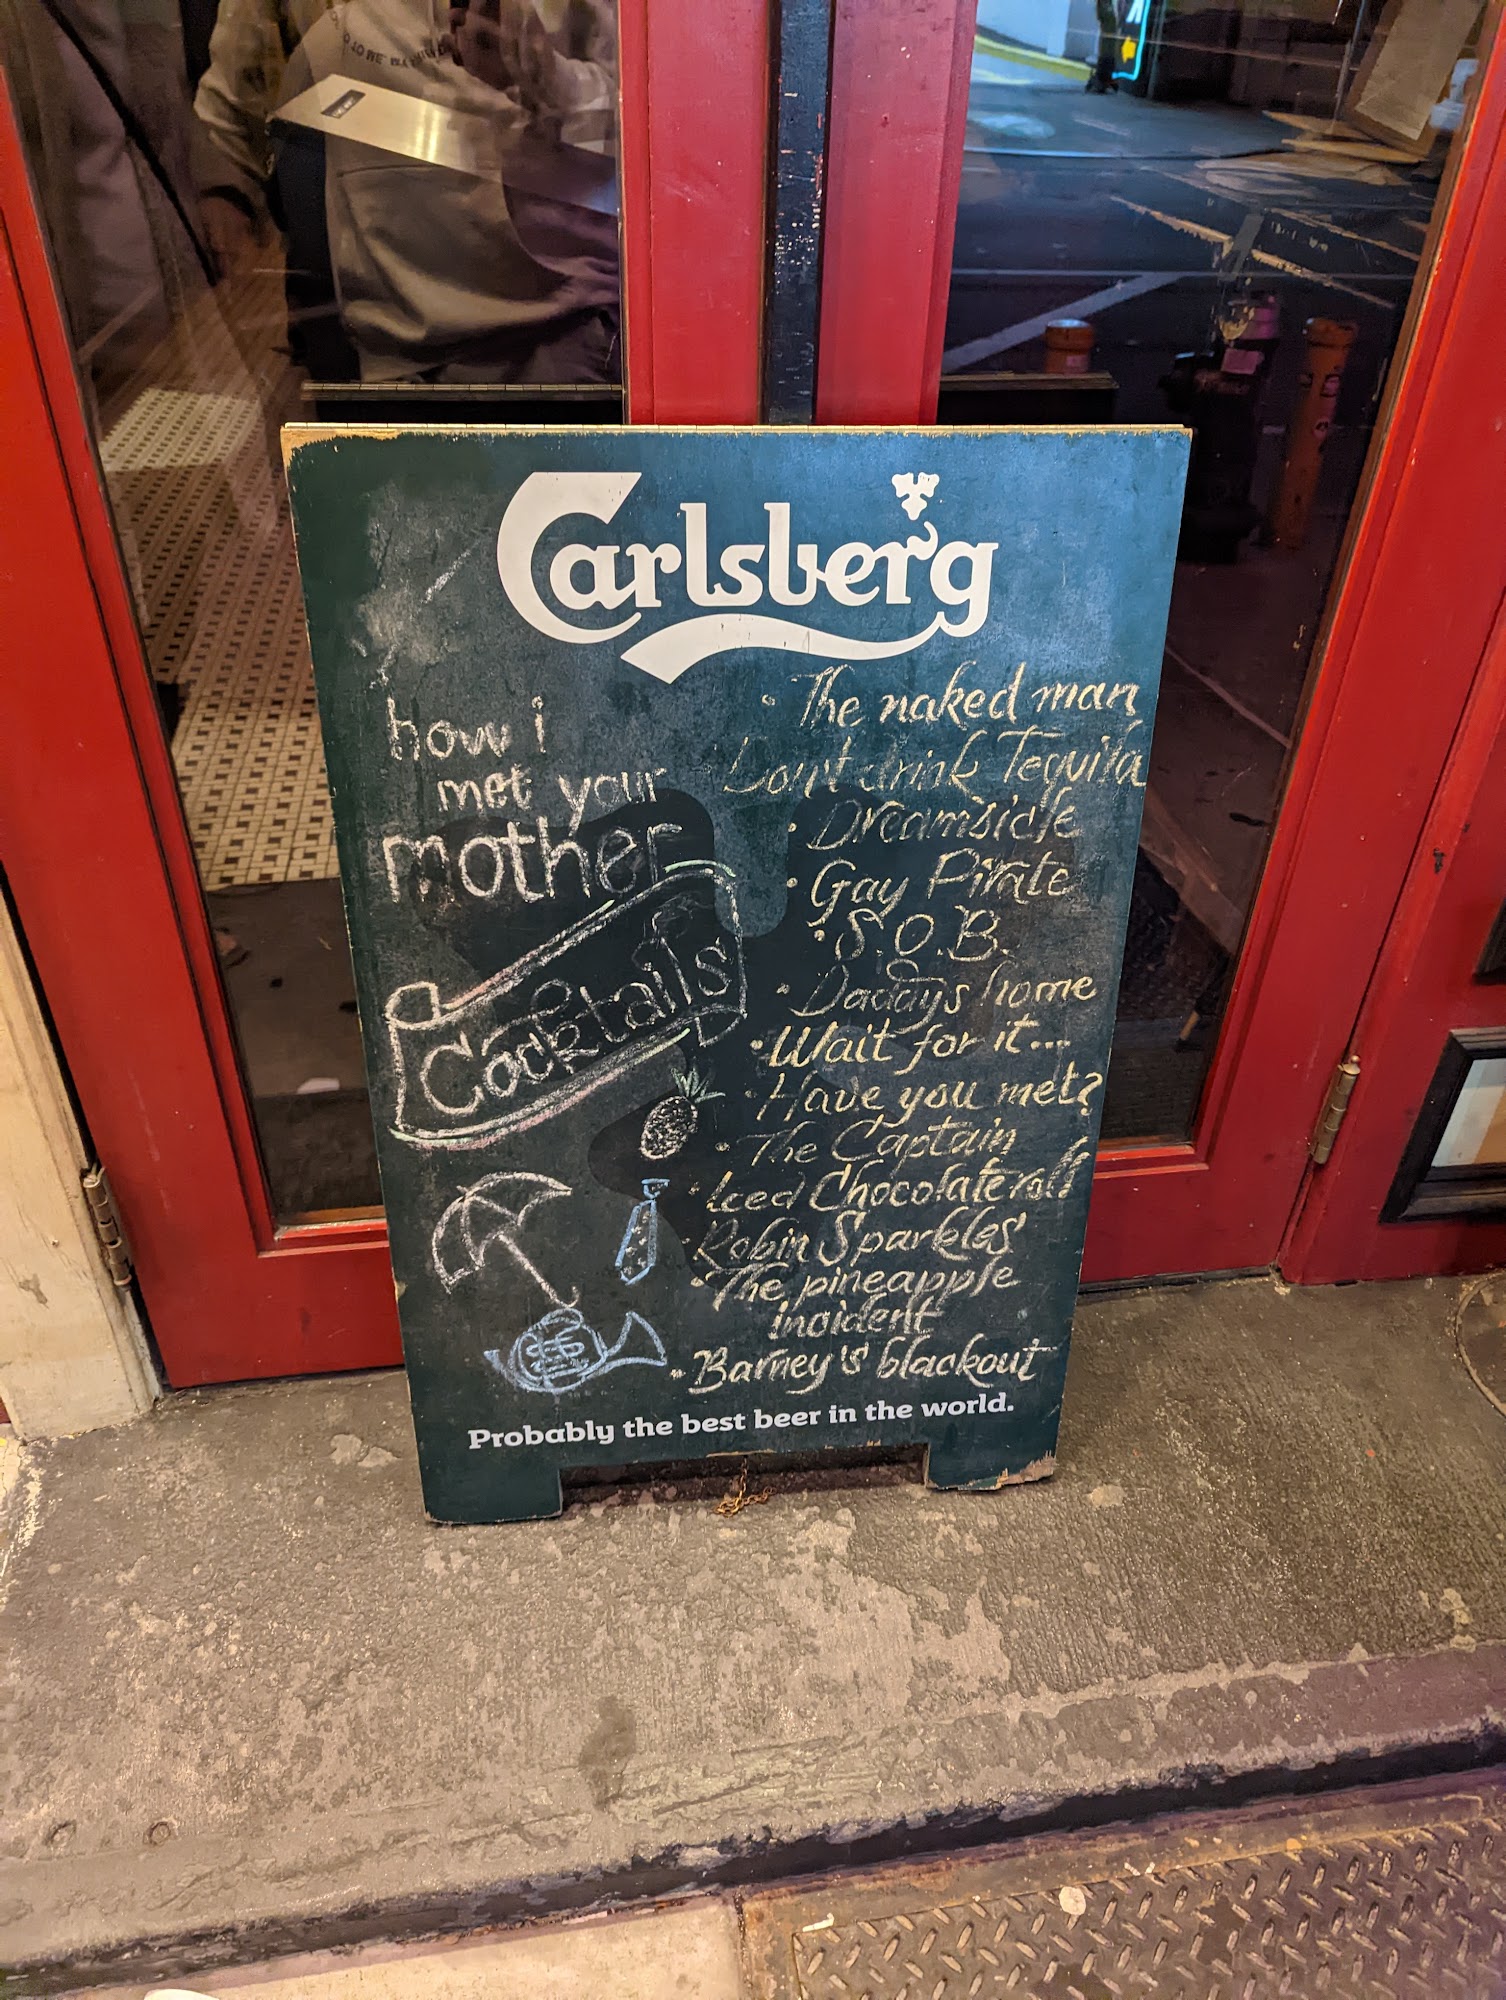 Carlsberg
how i
met your
mother
Cocktails
• The naked man
Don't drink Tequila
• Dreamsicle
• Gay Pirate
• S.O.B.
• Daddy's home
• Wait for it...
• Have you met?
• The Captain
• Iced Chocolate roll
• Robin Sparkles
• The pineapple
incident
• Barney's blackout
Probably the best beer in the world.